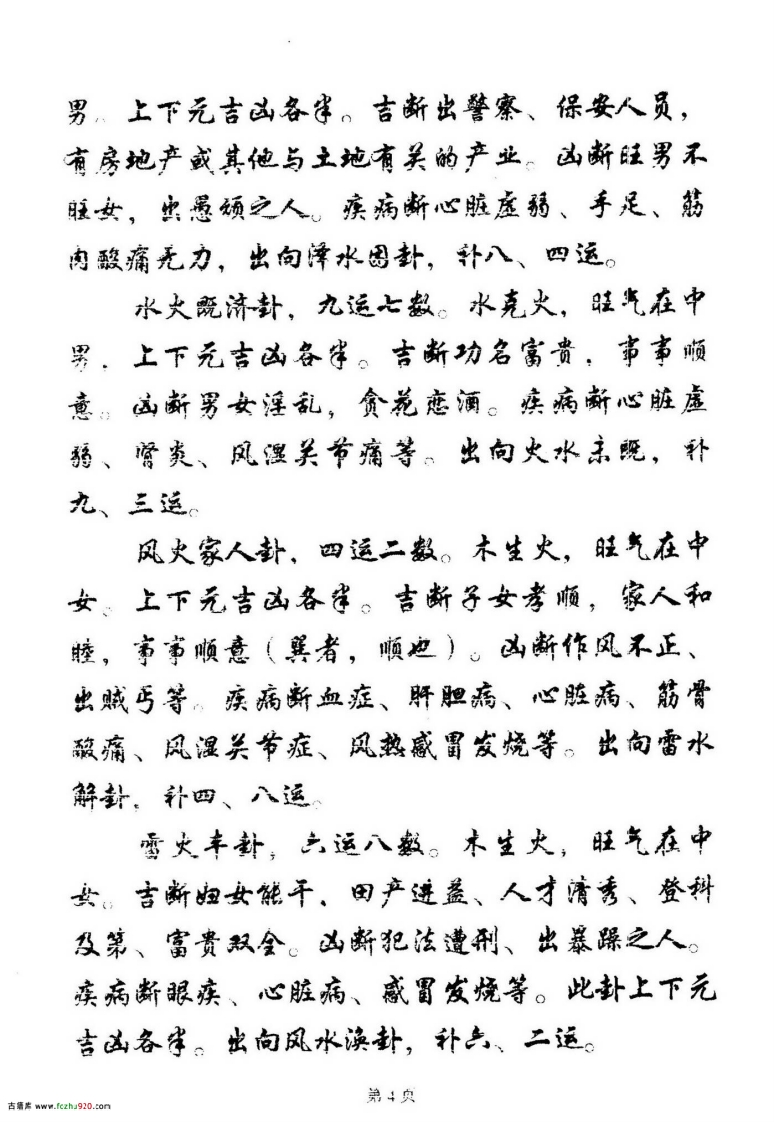 男。上下元吉凶各半。吉断出警察、保安人员，
有房地产或其他与土地有关的产业。凶断旺男不
旺女，出愚顽之人。疾病断心脏虚弱、手足、筋
肉酸痛无力，出向泽水困卦，补八、四运。
水火既济卦，九运七数。水克火，旺气在中
男，上下元吉凶各半。吉断功名富贵，事事顺
意。凶断男女淫乱，贪花恋酒。疾病断心脏虚
弱、肾炎、风湿关节痛等。出向火水未既，补
九、三运。
风火家人卦，四运二数。木生火，旺气在中
女、上下元吉凶各半。吉断子女孝顺，家人和
睦，事事顺意（巽者，顺也）。凶断作风不正、
出贼丐等。疾病断血症、肝胆病、心脏病、筋骨
酸痛、风湿关节症、风热感冒发烧等。出向雷水
解卦，补四、八运。
雷火丰卦，六运八数。木生火，旺气在中
女。吉断妇女能干，田产进益、人才清秀、登科
及第、富贵双全。凶断犯法遭刑、出暴躁之人。
疾病断眼疾、心脏病、感冒发烧等。此卦上下元
吉凶各半。出向风水涣卦，补六、二运。
第 4 页
古籍库 www.fczhu920.com